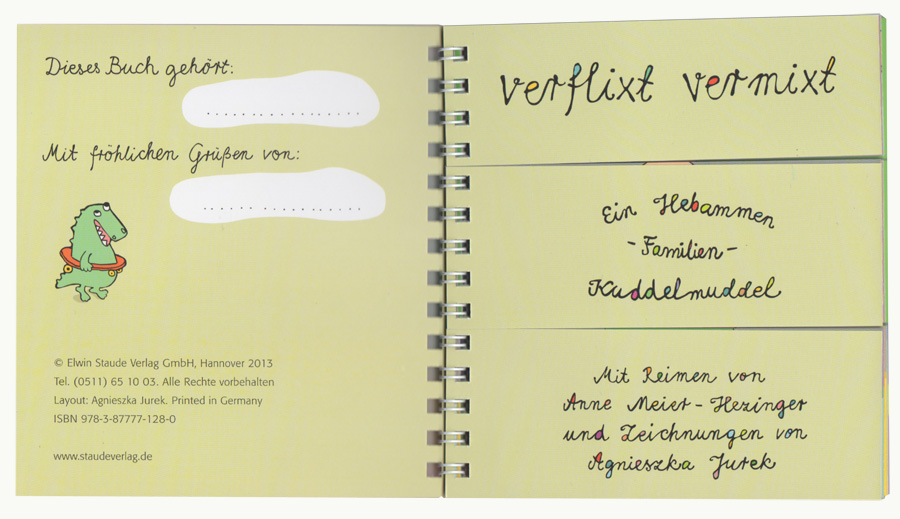 Dieses Buch gehört:
Mit fröhlichen Grüßen von:
© Elwin Staude Verlag GmbH, Hannover 2013
Tel. (0511) 65 10 03. Alle Rechte vorbehalten
Layout: Agnieszka Jurek. Printed in Germany
ISBN 978-3-87777-128-0
www.staudeverlag.de
verflixt vermixt
Ein Hebammen
-Familien-
Kuddelmuddel
Mit Reimen von
Anne Meier-Hezinger
und Zeichnungen von
Agnieszka Jurek